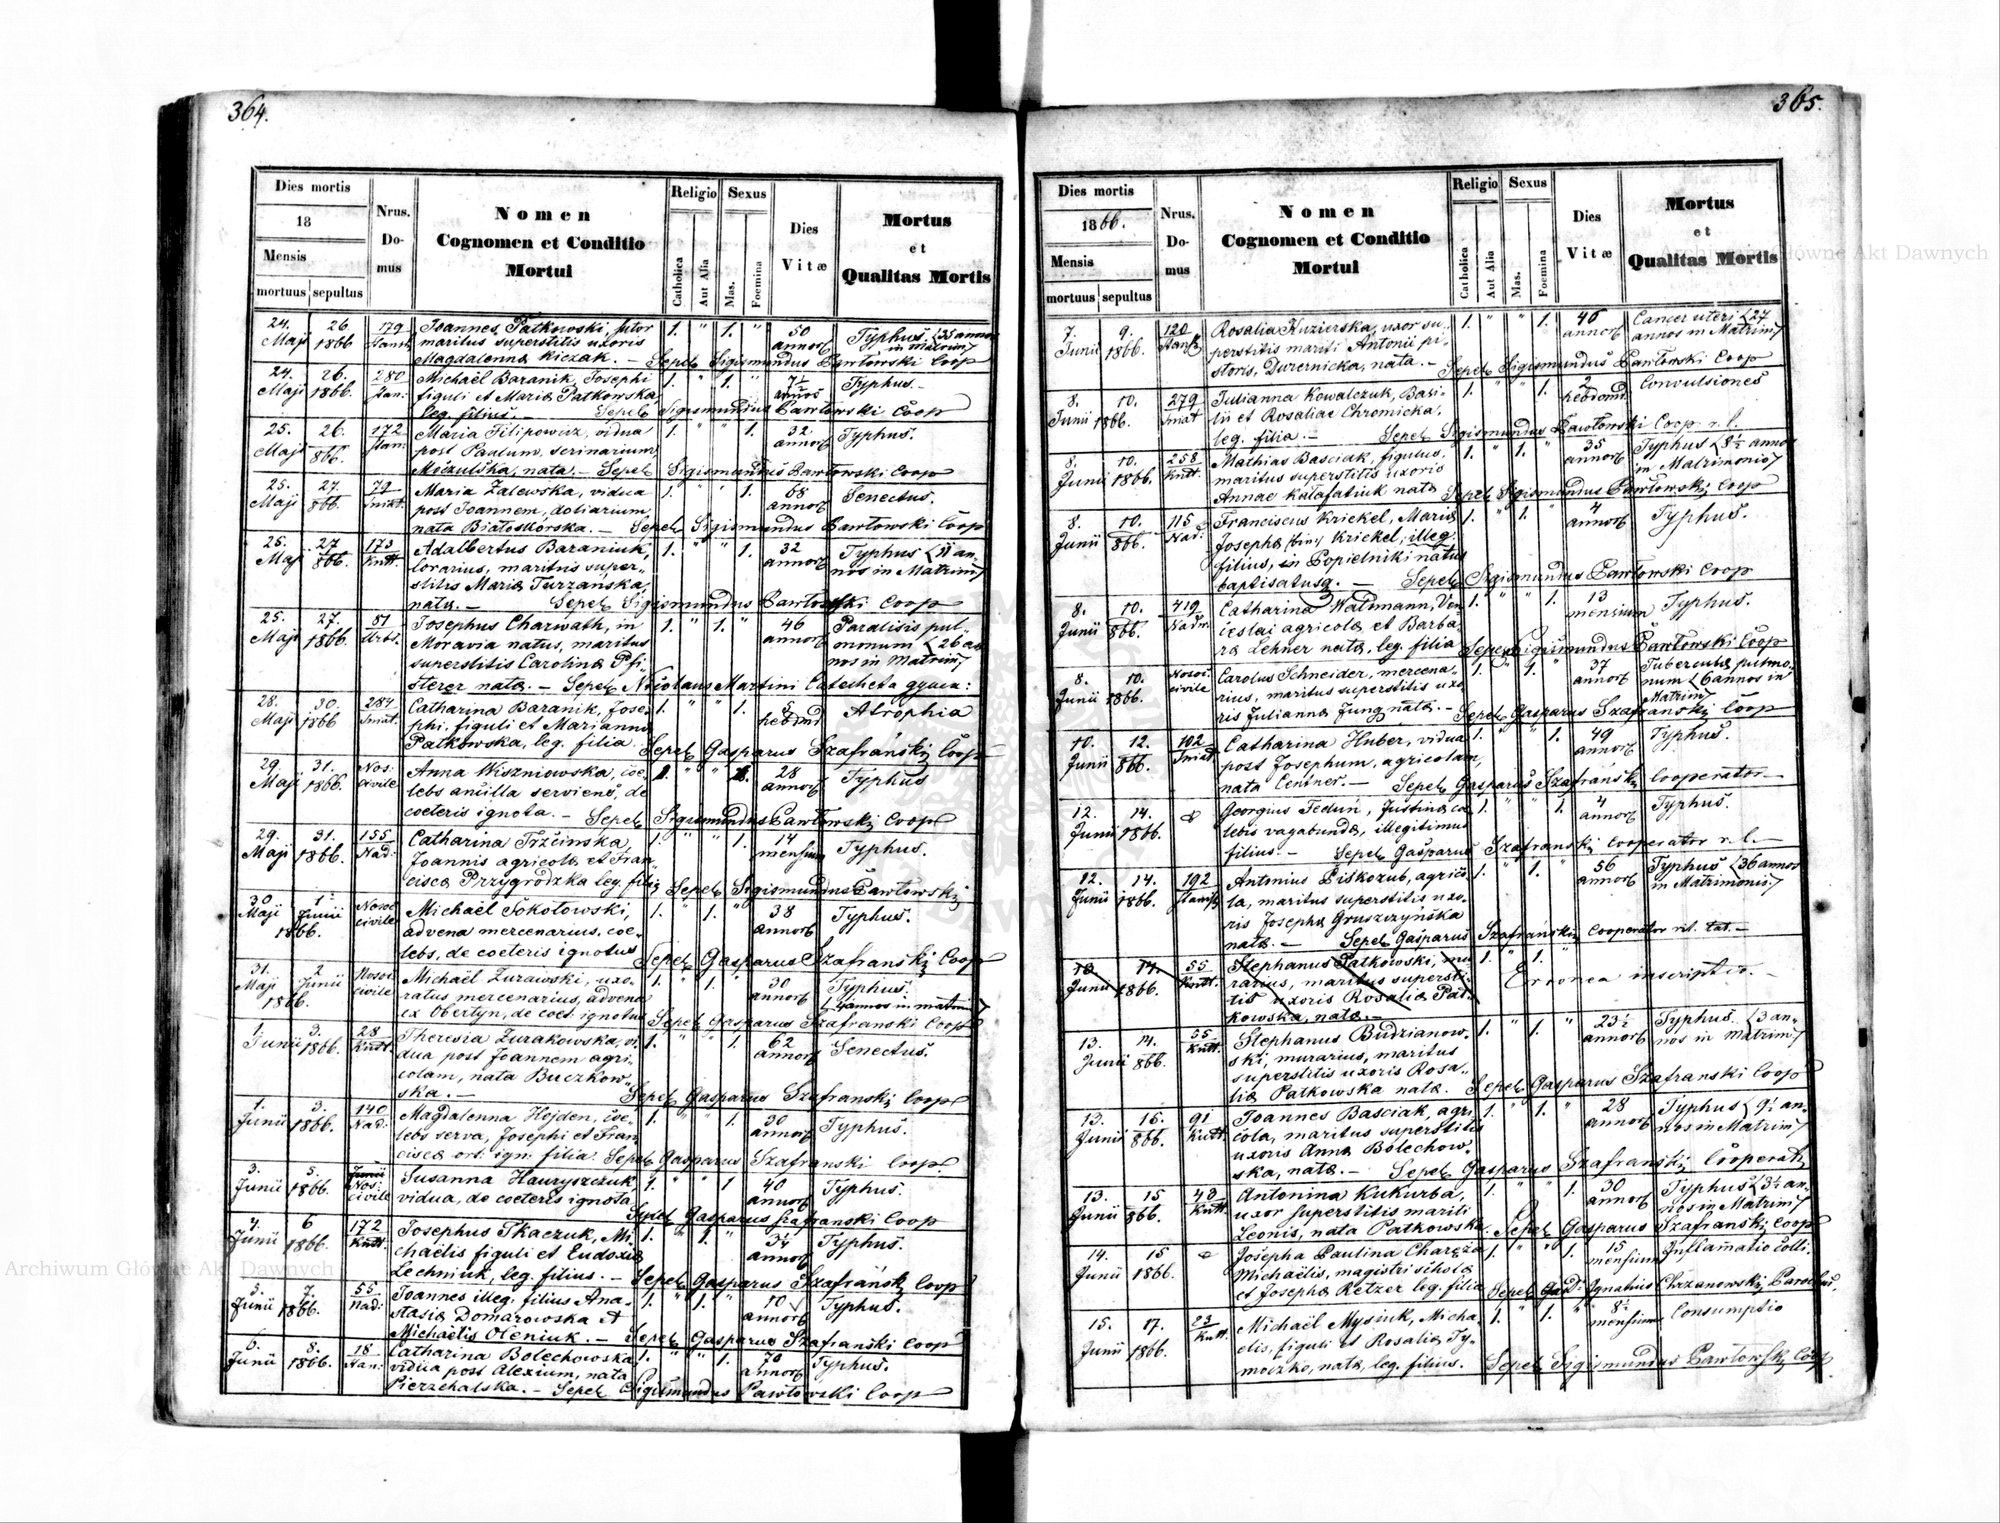 364.
Dies mortis
18
Mensis
mortuus sepultus
Nrus. Domus
Nomen
Cognomen et Conditio
Mortui
Religio
Catholica
Aut Alia
Sexus
Mas.
Foemina
Dies Vitæ
Mortus
et
Qualitas Mortis
24. Maji 26. 1866 179 Joannes Patkowski, sutor 1. " 1. " 50 annor Typhus. (35 annos
maritus superstitis uxoris in matrim)
Magdalena Kiczak. – Sepel Sigismundus Pawłowski Coop
24. Maji 26. 1866. 280 Michaël Baranik, Josephi 1. " 1. " 7½ annos Typhus.
figuli et Maria Patkowska
leg. filius. – Sepel Sigismundus Pawłowski Coop
25. Maji 26. 866. 172 Maria Filipowicz, vidua 1. " " 1. 32 annor Typhus.
post Paulum, serinarium,
nata. – Sepel Sigismundus Pawłowski Coop
25. Maji 27. 866. 79 Maria Zalewska, vidua 1. " " 1. 68 annor Senectus.
post Joannem, doliarium,
nata Białoskórska. – Sepel Sigismundus Pawłowski Coop
25. Maji 27 866. 173 Kutt. Adalbertus Baraniuk, 1. " " 1. 32 annor Typhus (11 an-
lorarius, maritus super- nos in Matrim)
stitis Maria Turzańska,
nata. – Sepel Sigismundus Pawłowski Coop
25. Maji 27. 1866 81 Urbs. Josephus Charwath, in 1. " 1. " 46 annor Paralisis pul-
Moravia natus, maritus monum (26 an
superstitis Carolina Pfi- nos in Matrim)
sterer nata. – Sepel Nicolaus Martini Catecheta gymn:
28. Maji 30. 1866 284 Catharina Baranik, Jose- 1. " " 1. 5 hebdmd Atrophia
phi, figuli et Marianna
Patkowska, leg. filia. Sepel Gasparus Szafrański Coop
29. Maji 31. 1866. Nos: civile Anna Wiszniowska, coe- 1. " " 1. 28 annor Typhus
lebs ancilla serviens, de
coeteris ignota. – Sepel Sigismundus Pawłowski Coop
29. Maji 31. 1866. 155 Nad: Catharina Trzcinska, 1. " " 1. 14 mensium Typhus.
Joannis agricola et Fran-
cisca Przygrodzka leg. filia Sepel Sigismundus Pawłowski
30 Maji 1 Junii 1866. Nosoc civile Michaël Sokołowski, 1. " 1. " 38 annor Typhus.
advena mercenarius, coe-
lebs, de coeteris ignotus Sepel Gasparus Szafrański Coop
31. Maji 2 Junii 1866. Nosoc civile Michaël Zurawski, uxo- 1. " 1. " 30 annor Typhus.
ratus mercenarius, advena annos in matrim)
ex Obertyn, de coet ignotus Sepel Gasparus Szafranski Coop
1. Junii 3. 1866. 28 Kutt. Theresia Zurakowska, vi- 1. " " 1. 62 annor Senectus.
dua post Joannem agri-
colam, nata Buczkow-
ska. – Sepel Gasparus Szafranski Coop
1. Junii 3. 1866. 140 Nad: Magdalenna Hejden, coe- 1. " " 1. 30 annor Typhus.
lebs serva, Josephi et Fran
cisca ort. ign. filia. Sepel Gasparus Szafranski Coop.
3. Junii 5. 1866. Nos: civile Susanna Hauryszczuk, 1. " " 1 40 annor Typhus.
vidua, de coeteris ignota
Sepel Gasparus Szafranski Coop
4. Junii 6 1866. 172 Kutt. Josephus Tkaczuk, Mi- 1. " 1. " 3¼ annor Typhus.
chaëlis figuli et Eudoxia
Lechniuk, leg. filius. – Sepel Gasparus Szafrańsk Coop
5. Junii 7. 1866. 55 Nad: Joannes illeg. filius Ana- 1. " 1. " 10 annor Typhus.
stasia Domarowska et
Michaëlis Oleniuk. – Sepel Gasparus Szafranski Coop
6. Junii 8. 1866. 18 Catharina Bolechowska 1. " " 1. 70 annor Typhus.
vidua post Alexium, nata
Pierzchalska. – Sepel Sigismundus Pawłowski Coop
365.
Dies mortis
1866.
Mensis
mortuus sepultus
Nrus. Domus
Nomen
Cognomen et Conditio
Mortui
Religio
Catholica
Aut Alia
Sexus
Mas.
Foemina
Dies Vitæ
Mortus
et
Qualitas Mortis
7. Junii 9. 1866. 120 Rosalia Kuzierska, uxor su- 1. " " 1. 46 annor Cancer uteri (27
perstitis mariti Antonii pi- annos in Matrim)
storis, Dwernicka, nata. – Sepel Sigismundus Pawłowski Coop
8. Junii 10. 1866. 279 Julianna Kowalczuk, Basi- 1. " " 1. 2 hebdomd Convulsiones
lii et Rosaliae Chromicka,
leg. filia. – Sepel Sigismundus Pawłowski Coop r. l.
8. Junii 10. 1866. 258 Kutt. Mathias Basciak, figulus, 1. " 1. " 35 annor Typhus (8½ annos
maritus superstitis uxoris in Matrimonio)
Annae Kalafatiuk nata Sepel Sigismundus Pawłowski Coop
8. Junii 10. 866. 115 Nad: Franciscus Krickel, Maria 1. " 1. " 4 annor Typhus.
Josepha (bin:) Krickel, illeg.
filius, in Popielniki natus
baptisatusq. – Sepel Sigismundus Pawłowski Coop
8. Junii 10. 866. 419 Catharina Waldmann, Ven- 1. " " 1. 13 mensium Typhus.
ceslai agricola et Barba-
ra Lehner nata, leg. filia Sepel Sigismundus Pawłowski Coop
8. Junii 10. 1866. Nosoc. civile Carolus Schneider, mercena- 1. " 1. " 37 annor Tubercula pulmo-
rius, maritus superstitis uxo num (6 annos in
ris Julianna Jung nata. – Matrim)
Sepel Gasparus Szafrański Coop
10. Junii 12. 866. 102 Catharina Huber, vidua 1. " " 1. 49 annor Typhus.
post Josephum, agricolam,
nata Centner. – Sepel Gasparus Szafrańsk Cooperator –
12. Junii 14. 1866. Georgius Fedun, Justina ca 1. " " 1. 4 annor Typhus.
lebis vagabunda, illegitimus
filius. – Sepel Gasparus Szafranski Cooperator r. l. –
12. Junii 14. 1866. 192 Antonius Piskozub, agrico- 1. " 1. " 56 annor Typhus (36 annos
la, maritus superstitis uxo- in Matrimonio)
ris Josepha Gruszczyńska
nata. – Sepel Gasparus Szafrański Cooperator rit. lat. –
13 Junii 14. 1866. 55 Kutt. Stephanus Patkowski, mu 1. " 1. " Erronea inscriptio. –
rarius, maritus supersti-
tis uxoris Rosalia Pat-
kowska, nata. –
13. Junii 14. 866. 55 Kutt. Stephanus Budzianow- 1. " 1. " 23½ annor Typhus. (3 an-
ski, murarius, maritus nos in Matrim)
superstitis uxoris Rosa-
lia Patkowska nata. Sepel Gasparus Szafranski Coop
13. Junii 15. 866. 91 Kutt. Joannes Basciak, agri- 1. " 1. " 28 annor Typhus (9½ an-
cola, maritus superstitis nos in Matrim)
uxoris Anna Bolechow-
ska, nata. – Sepel Gasparus Szafranski Cooperat
13. Junii 15 866. 43 Kutt. Antonina Kukurba, 1. " " 1. 30 annor Typhus (3½ an-
uxor superstitis mariti nos in Matrim)
Leonis, nata Patkowska. Sepel Gasparus Szafranski Coop
14. Junii 15 1866. Josepha Paulina Charęza 1. " " 1. 15 mensium Inflammatio colli.
Michaëlis, magistri schola
et Josepha Retzer leg. filia Sepel Ignatius Chrzanowski Parochus.
15. Junii 17. 1866. 23 Kutt. Michaël Mysiuk, Micha- 1. " 1. " 8½ mensium Consumptio
elis, figuli et Rosalia Ty-
moczko, nata, leg. filius. Sepel Sigismundus Pawłowski Coop
Archiwum Główne Akt Dawnych
Archiwum Główne Akt Dawnych